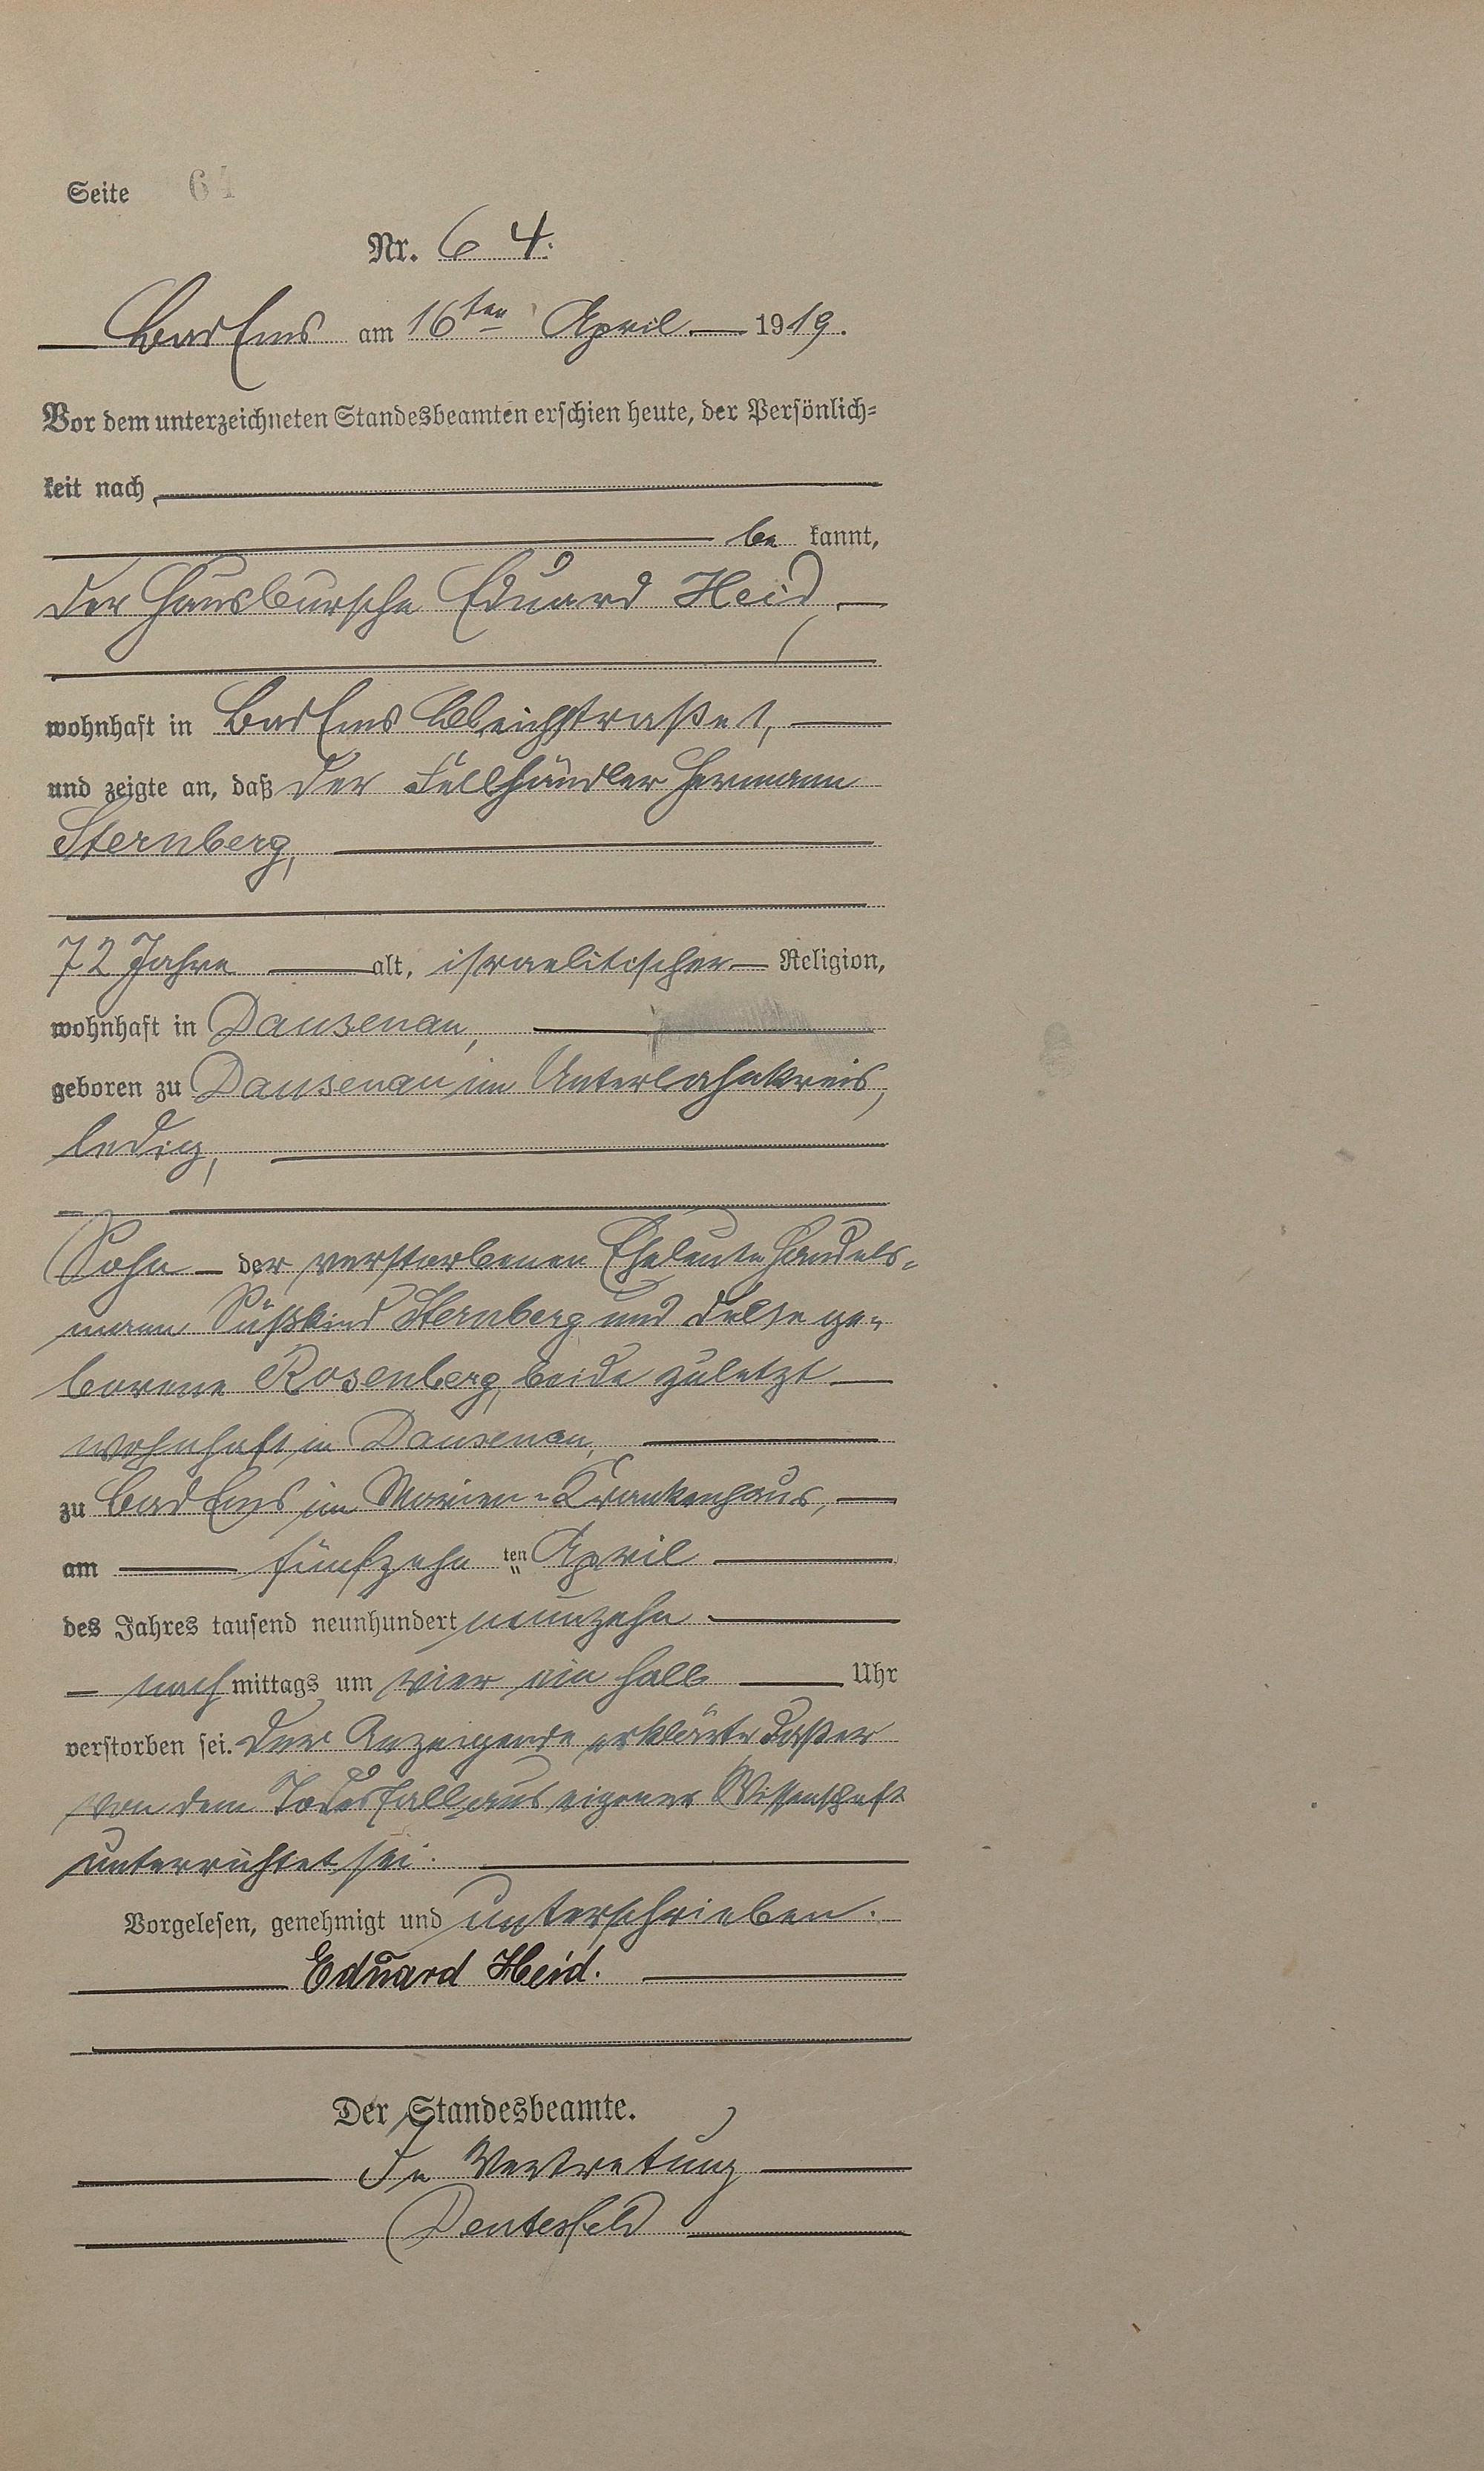 Seite 64
Nr. 64.
Bad Ems am 16ten April 1919.
Vor dem unterzeichneten Standesbeamten erschien heute, der Persönlich-
keit nach
be kannt,
der Hausbursche Eduard Heid,
wohnhaft in Bad Ems Bleichstraße 1,
und zeigte an, daß der Fellhändler Hermann
Sternberg,
72 Jahre alt, israelitischer Religion,
wohnhaft in Dausenau,
geboren zu Dausenau im Unterlahnkreis,
ledig,
Sohn der verstorbenen Eheleute Handels-
mann Süßkind Sternberg und ge-
borene Rosenberg, beide zuletzt
wohnhaft in Dausenau,
zu Bad Ems im Marien-Krankenhaus,
am fünfzehn ten April
des Jahres tausend neunhundert neunzehn
nach mittags um vier ein halb Uhr
verstorben sei. Der Anzeigende erklärte daß er
von dem Todesfall aus eigener Wissenschaft
unterrichtet sei.
Vorgelesen, genehmigt und unterschrieben.
Eduard Heid.
Der Standesbeamte.
In Vertretung